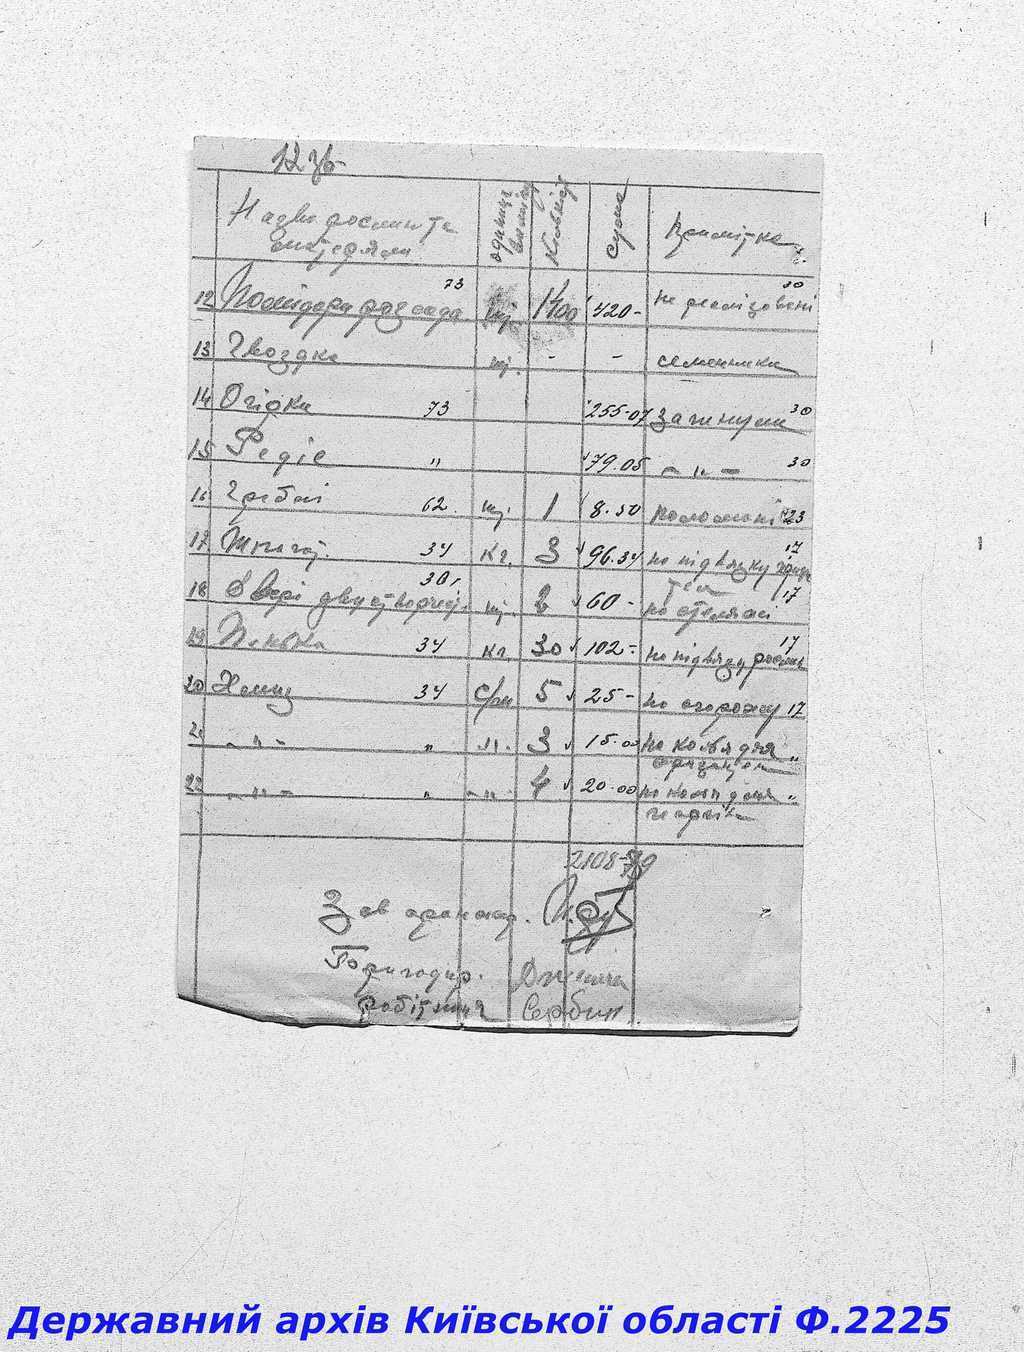 12 зв
Назва рослин та матеріали одиниця виміру Кількість сума Примітка
12 Помідори розсада 73 шт. 1400 420- не реалізовані 30
13 Гвоздка шт. - - семенники
14 Огірки 73 255-07 загинули 30
15 Редіс " 79.05 - " - 30
16 Граблі 62 шт. 1 8.50 поломані 23
17 Шпагат 34 кг. 3 96.34 на підвязку 17
18 Двері двустворчаті 30, шт. 2 60- на стелажі 17
19 Пенька 34 кг. 30 102- на підвязу рослин 17
20 Хмиз 34 5 25- на огорожу 17
21 - " - " " 3 15.00 на колья для "
22 - " - " - " - 4 20.00 на колья для "
2108-79
Зав оранжер.
Бригадир.
робітниця Сербин.
Державний архів Київської області Ф.2225